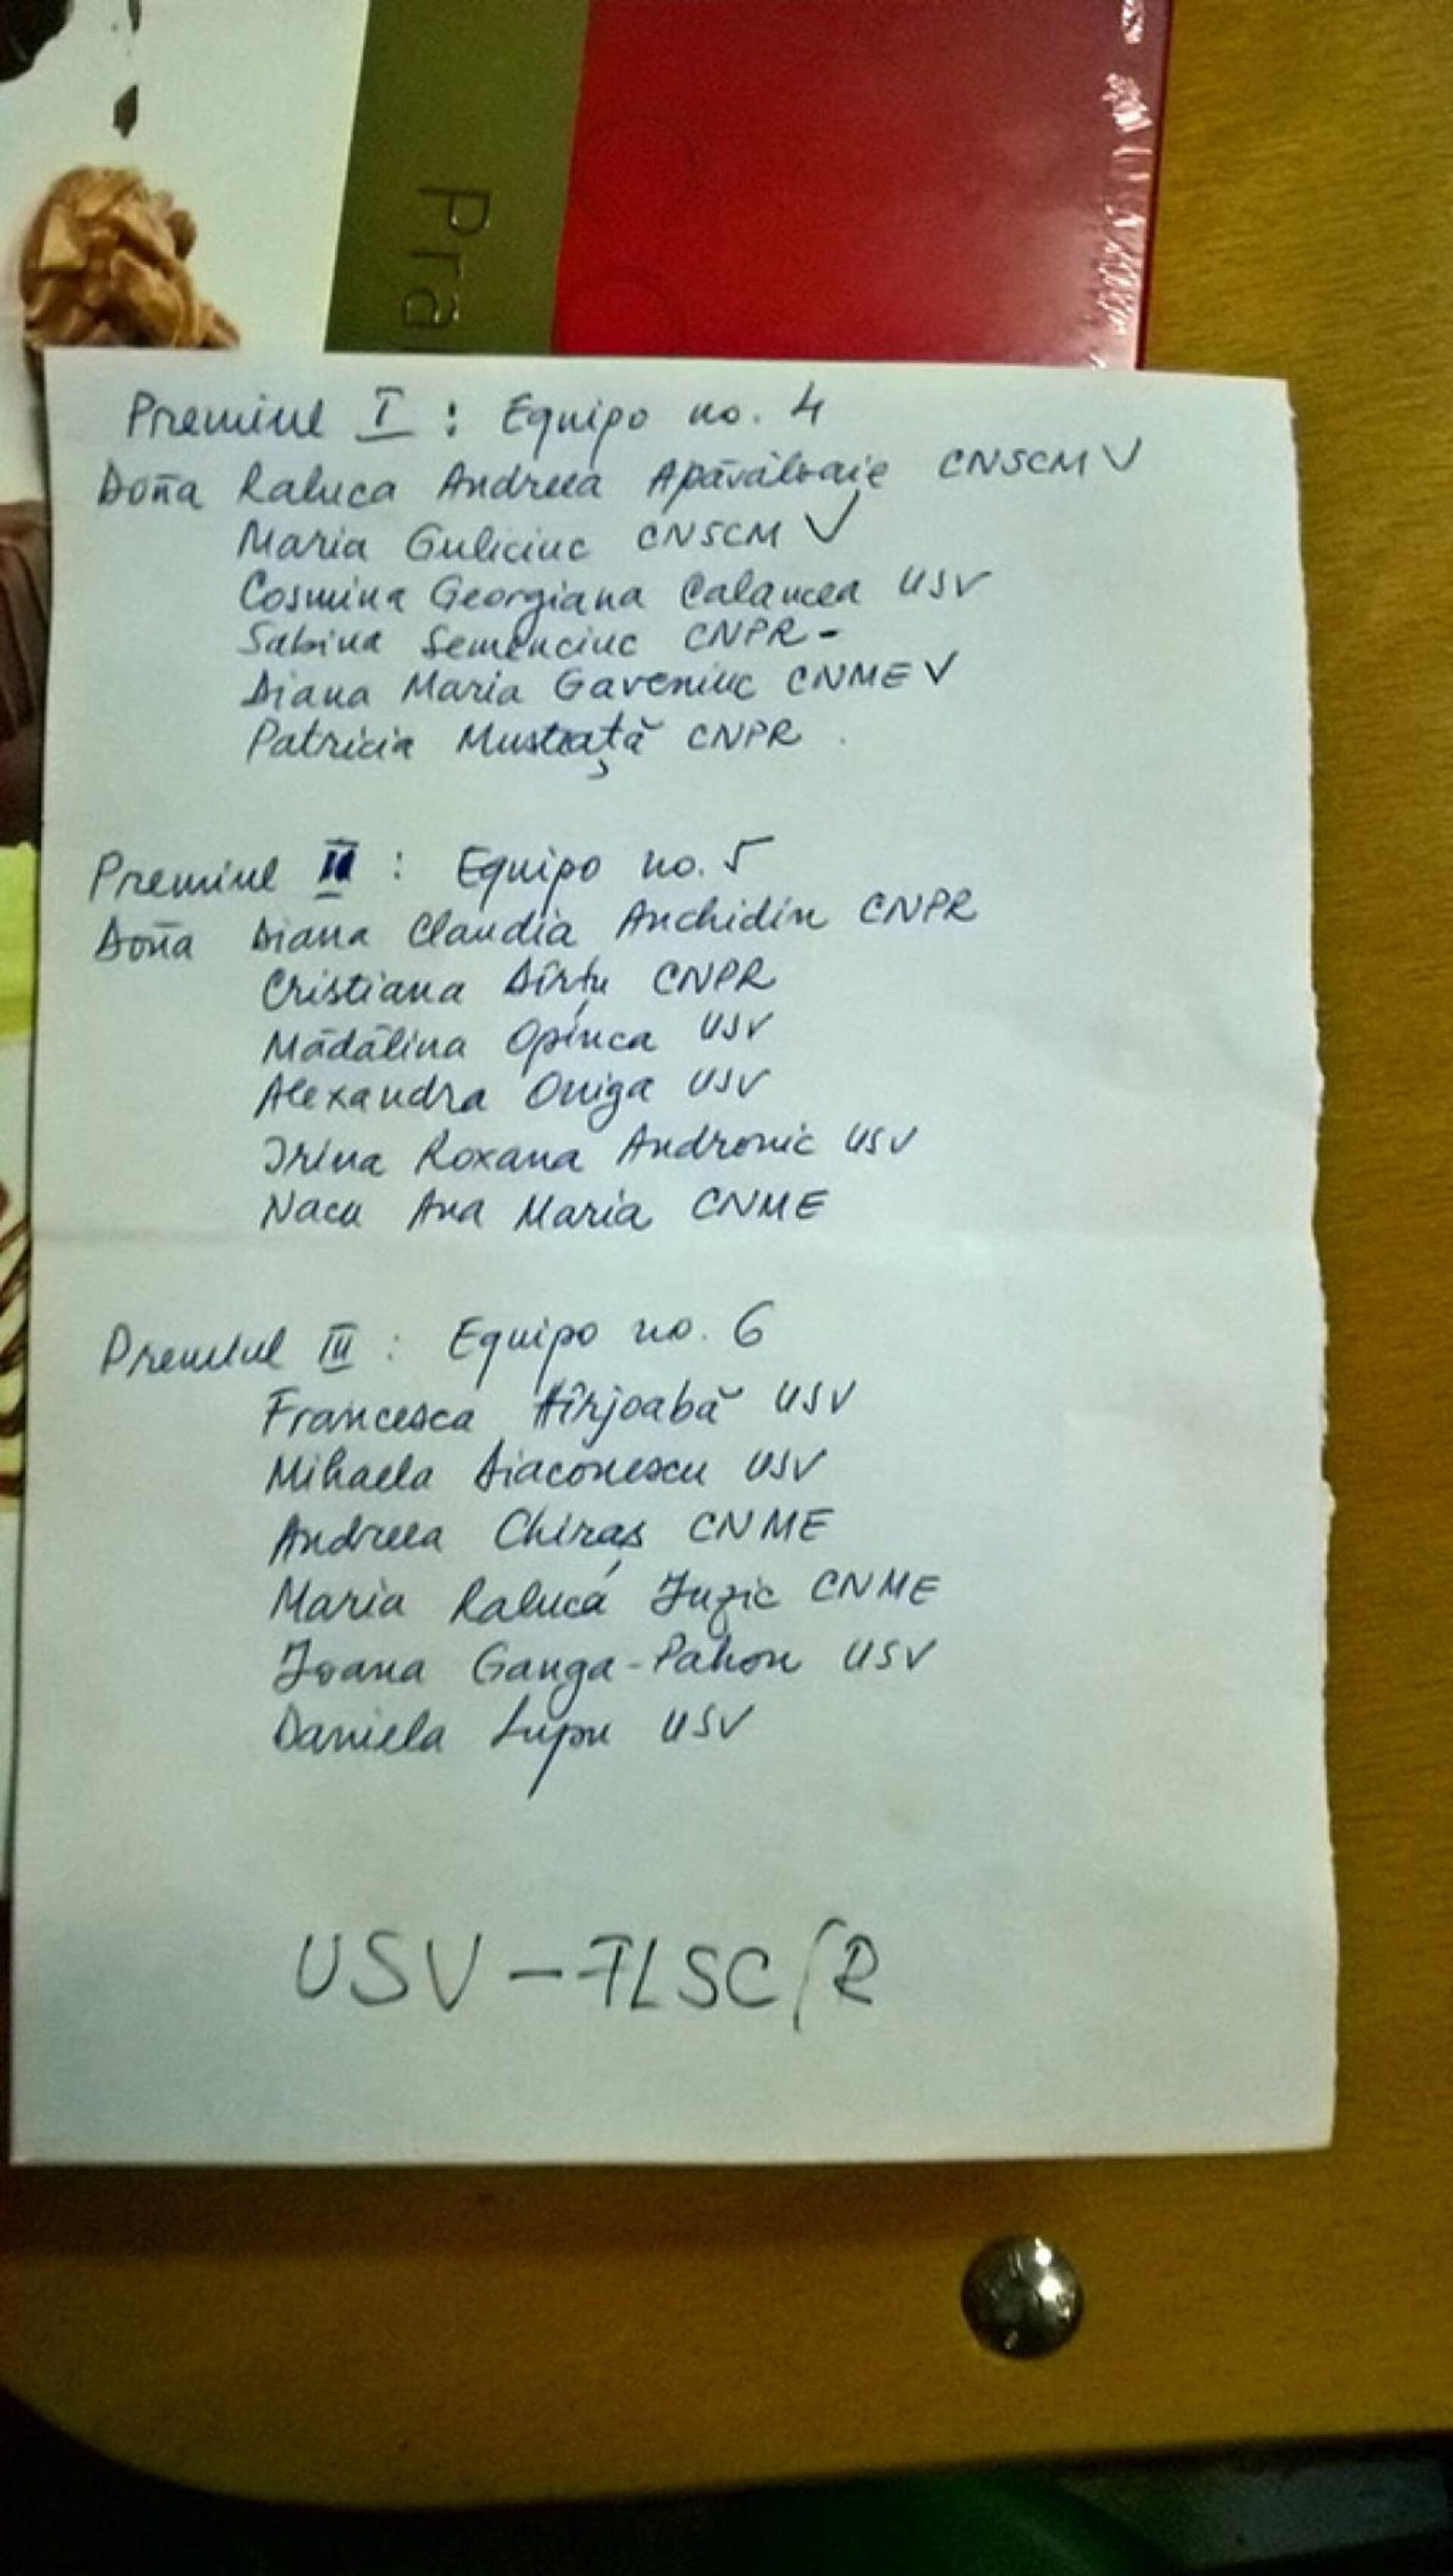 Pra
Premiul I : Equipo no. 4
Doña Raluca Andreea Apăvăloaie CNSCM V
Maria Guliciuc CNSCM V
Cosmina Georgiana Calancea USV
Sabina Semenciuc CNPR -
Diana Maria Gaveniuc CNME V
Patricia Musteață CNPR
Premiul II : Equipo no. 5
Doña Diana Claudia Anchidin CNPR
Cristiana Dîrțu CNPR
Mădălina Opinca USV
Alexandra Oniga USV
Irina Roxana Andronic USV
Nacu Ana Maria CNME
Premiul III : Equipo no. 6
Francesca Hîrjoabă USV
Mihaela Diaconescu USV
Andreea Chiraș CNME
Maria Raluca CNME
Ioana Ganga-Pahon USV
Daniela Lupu USV
USV - FLSC/R